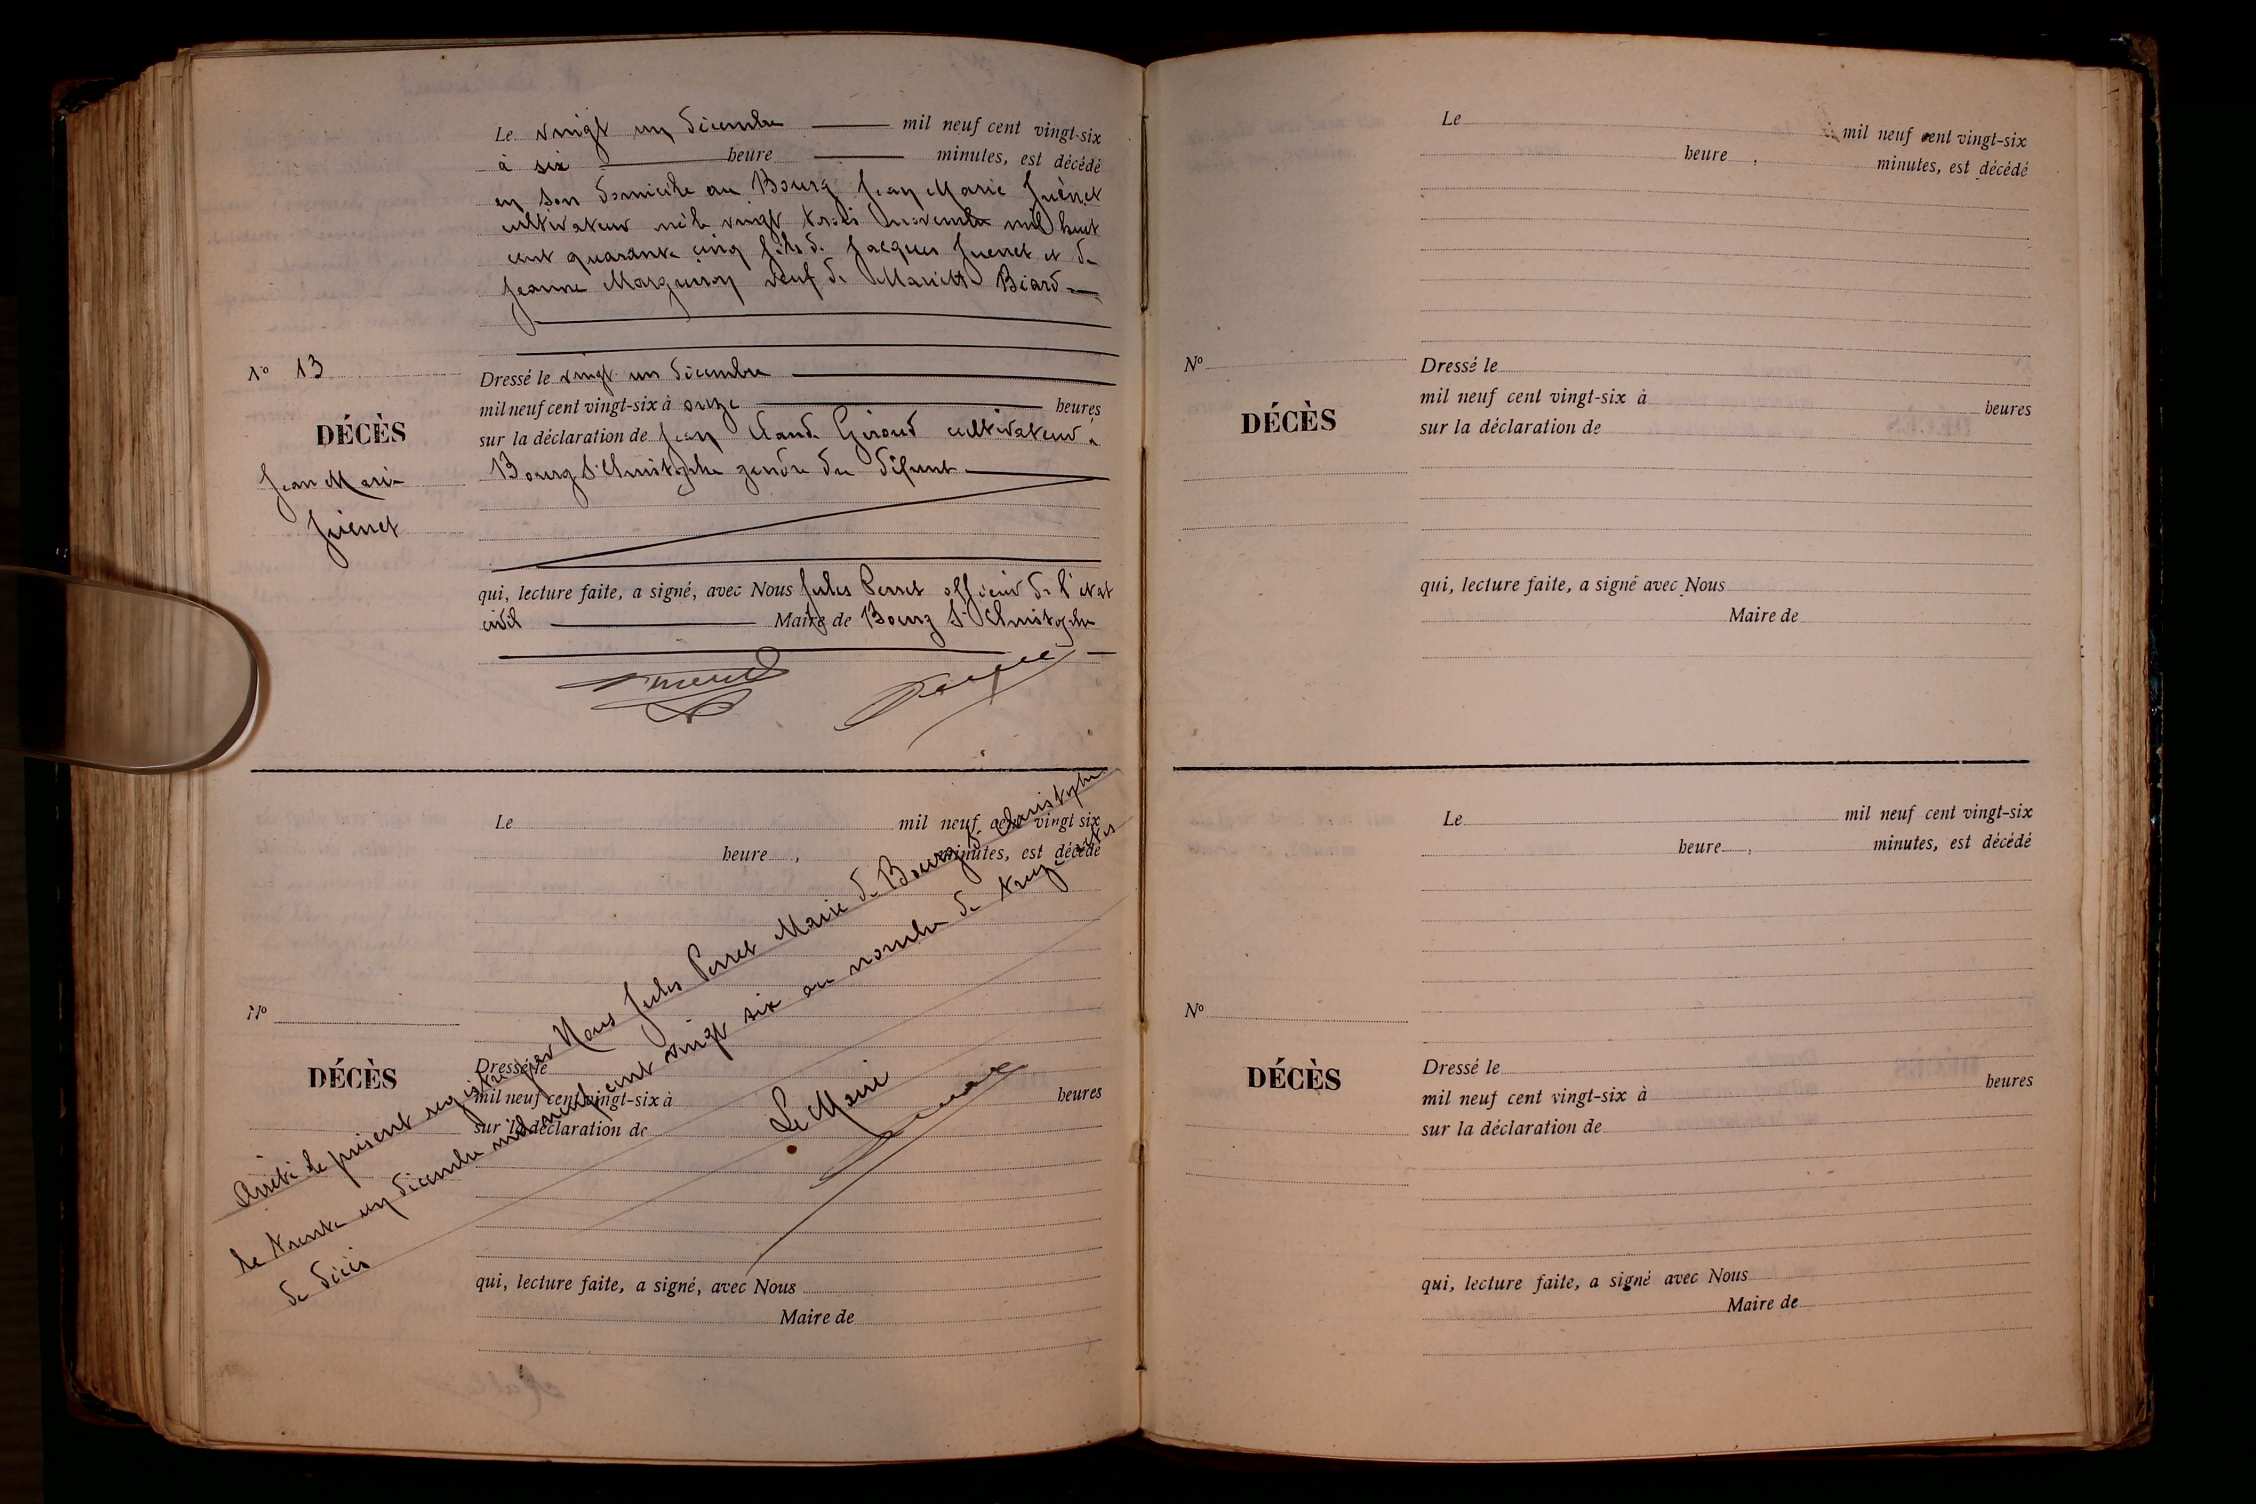 Le vingt un décembre mil neuf cent vingt-six
à six heure minutes, est décédé
en son domicile au Bourg Jean Marie Juenet
cultivateur né le vingt trois novembre mil huit
cent quarante cinq fils de Jacques Juenet et de
Jeanne Marguiron veuf de Mariette Biard
N° 13
DÉCÈS
Jean Marie
Juenet
Dressé le vingt un décembre
mil neuf cent vingt-six à onze heures
sur la déclaration de Jean Claude Giroud cultivateur à
Bourg St Christophe gendre du défunt
qui, lecture faite, a signé, avec Nous Jules Perret officier de l'état
civil Maire de Bourg St Christophe
Le mil neuf cent vingt six
heure, minutes, est décédé
N°
DÉCÈS
Dressé le
mil neuf cent vingt-six à heures
sur la déclaration de
Arrêté le présent registre par Nous Jules Perret Maire de Bourg St Christophe
le trente un décembre mil neuf cent vingt six au nombre de treize actes
de décès
Le Maire
qui, lecture faite, a signé, avec Nous
Maire de
Le mil neuf cent vingt-six
heure, minutes, est décédé
N°
DÉCÈS
Dressé le
mil neuf cent vingt-six à heures
sur la déclaration de
qui, lecture faite, a signé avec Nous
Maire de
Le mil neuf cent vingt-six
heure, minutes, est décédé
N°
DÉCÈS
Dressé le
mil neuf cent vingt-six à heures
sur la déclaration de
qui, lecture faite, a signé avec Nous
Maire de